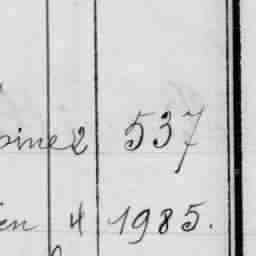 pine 2 537
en 4 1985.